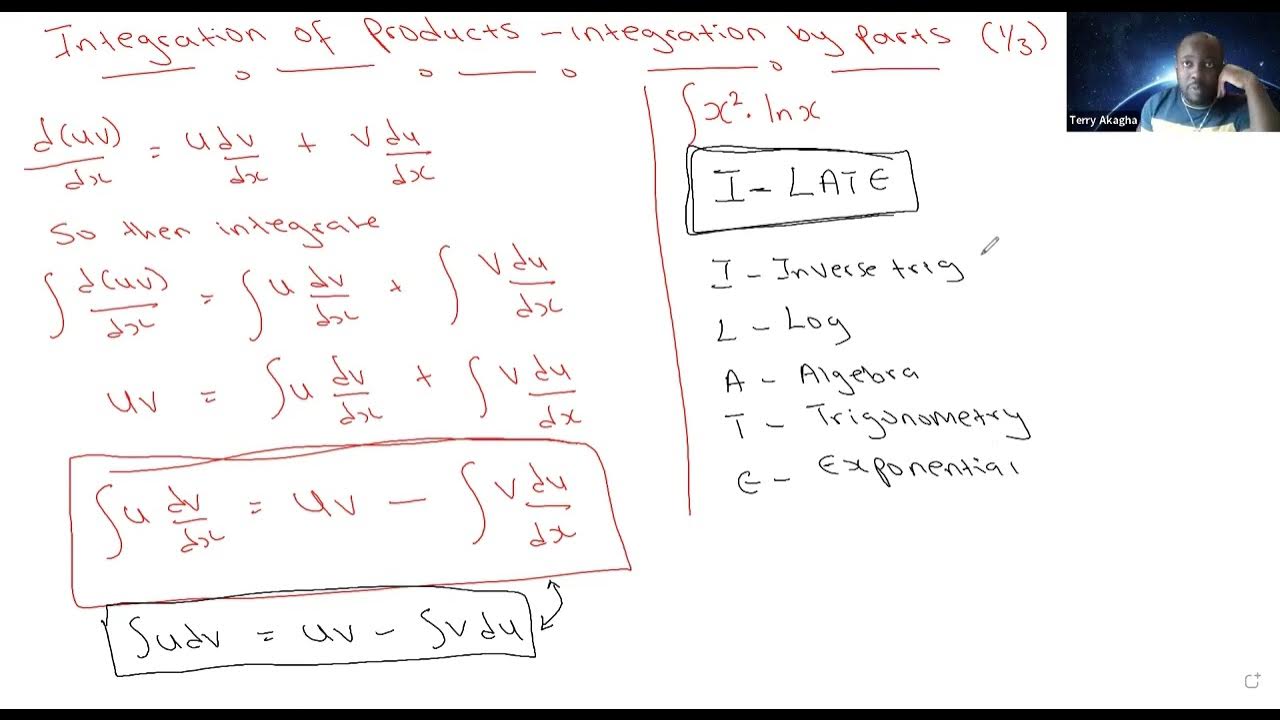 Integration of products - integration by parts (1/3)
d(uv)/dx = u dv/dx + v du/dx
So then integrate
∫ d(uv)/dx = ∫ u dv/dx + ∫ v du/dx
uv = ∫ u dv/dx + ∫ v du/dx
∫ u dv/dx = uv - ∫ v du/dx
∫ u dv = uv - ∫ v du
∫ x². ln x
I - LATE
I - Inverse trig
L - Log
A - Algebra
T - Trigonometry
E - Exponential
Terry Akagha